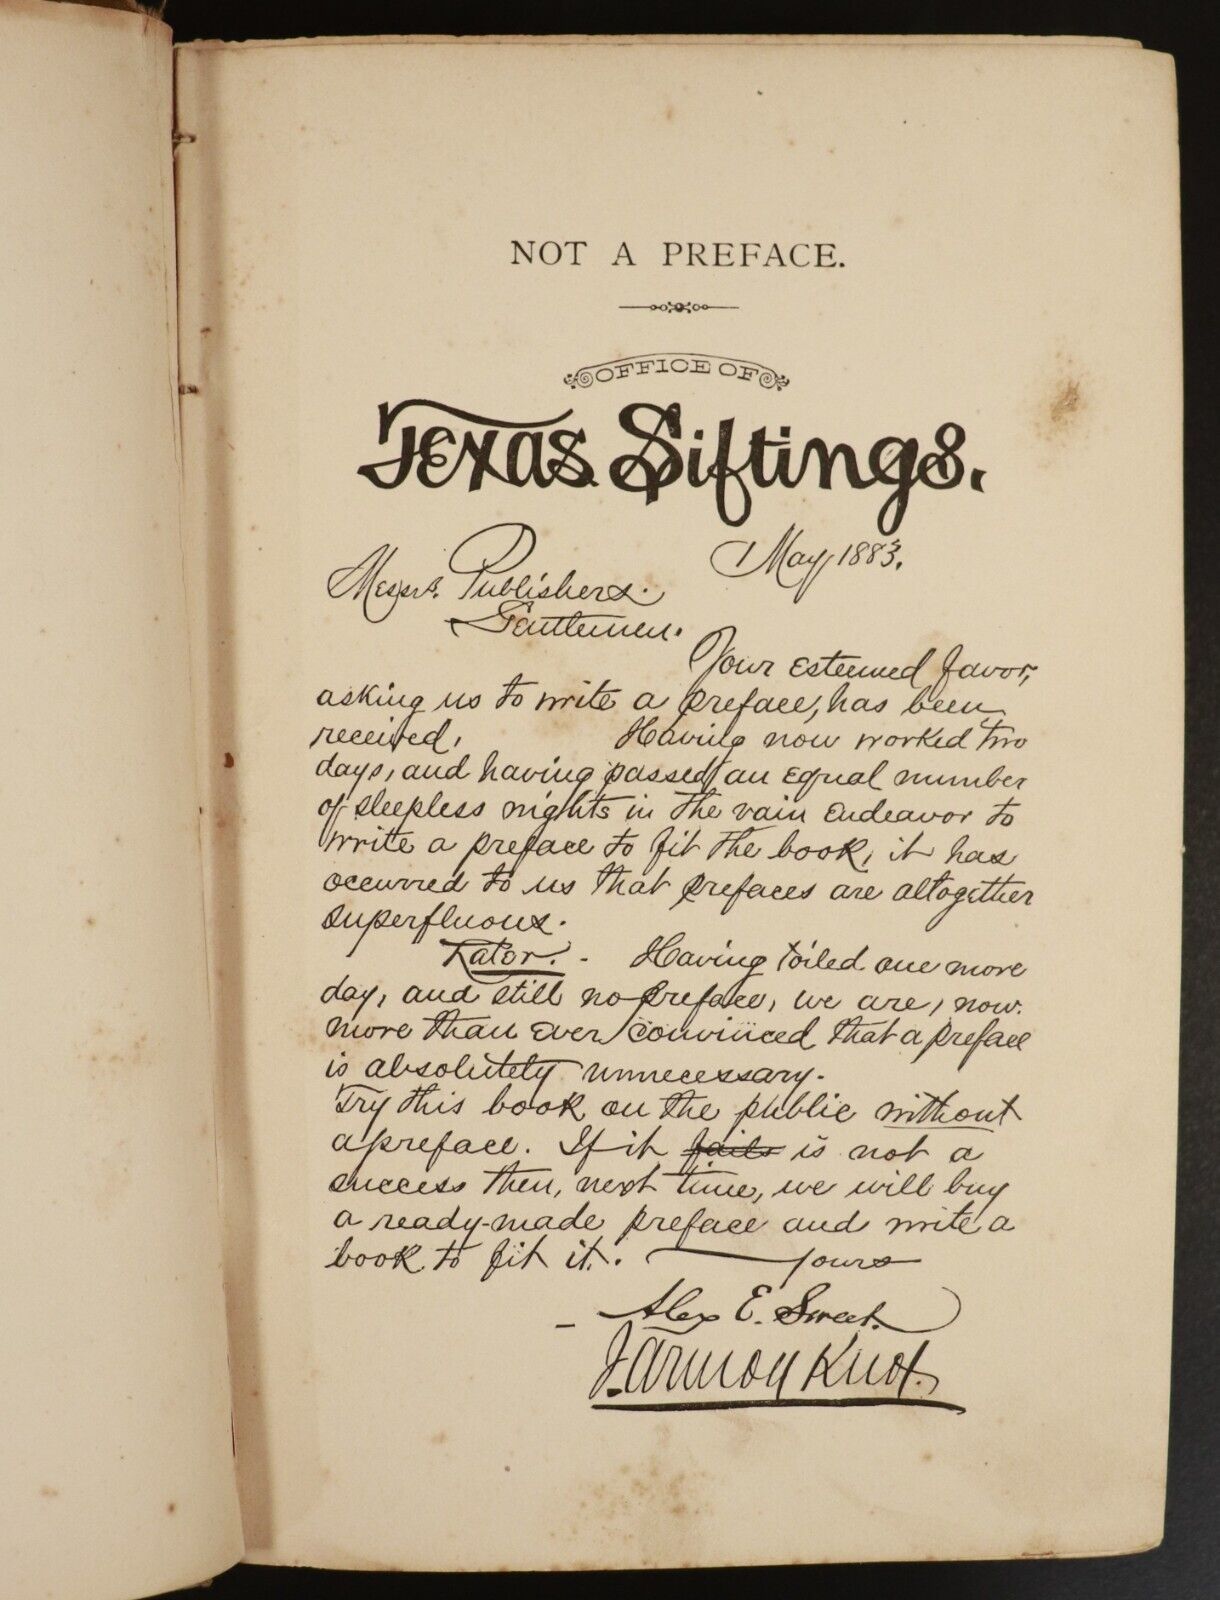 NOT A PREFACE.
OFFICE OF
Texas Siftings.
May, 1883.
Messrs. Publishers.
Gentlemen.
Your esteemed favor,
asking us to write a preface, has been
received. Having now worked two
days, and having passed an equal number
of sleepless nights in the vain endeavor to
write a preface to fit the book, it has
occurred to us that prefaces are altogether
superfluous.
Later. - Having toiled one more
day, and still no preface, we are, now.
more than ever convinced that a preface
is absolutely unnecessary.
Try this book on the public without
a preface. If it fails is not a
success then, next time, we will buy
a ready-made preface and write a
book to fit it. yours
- Alex E. Sweet.
J. Armoy Knox.